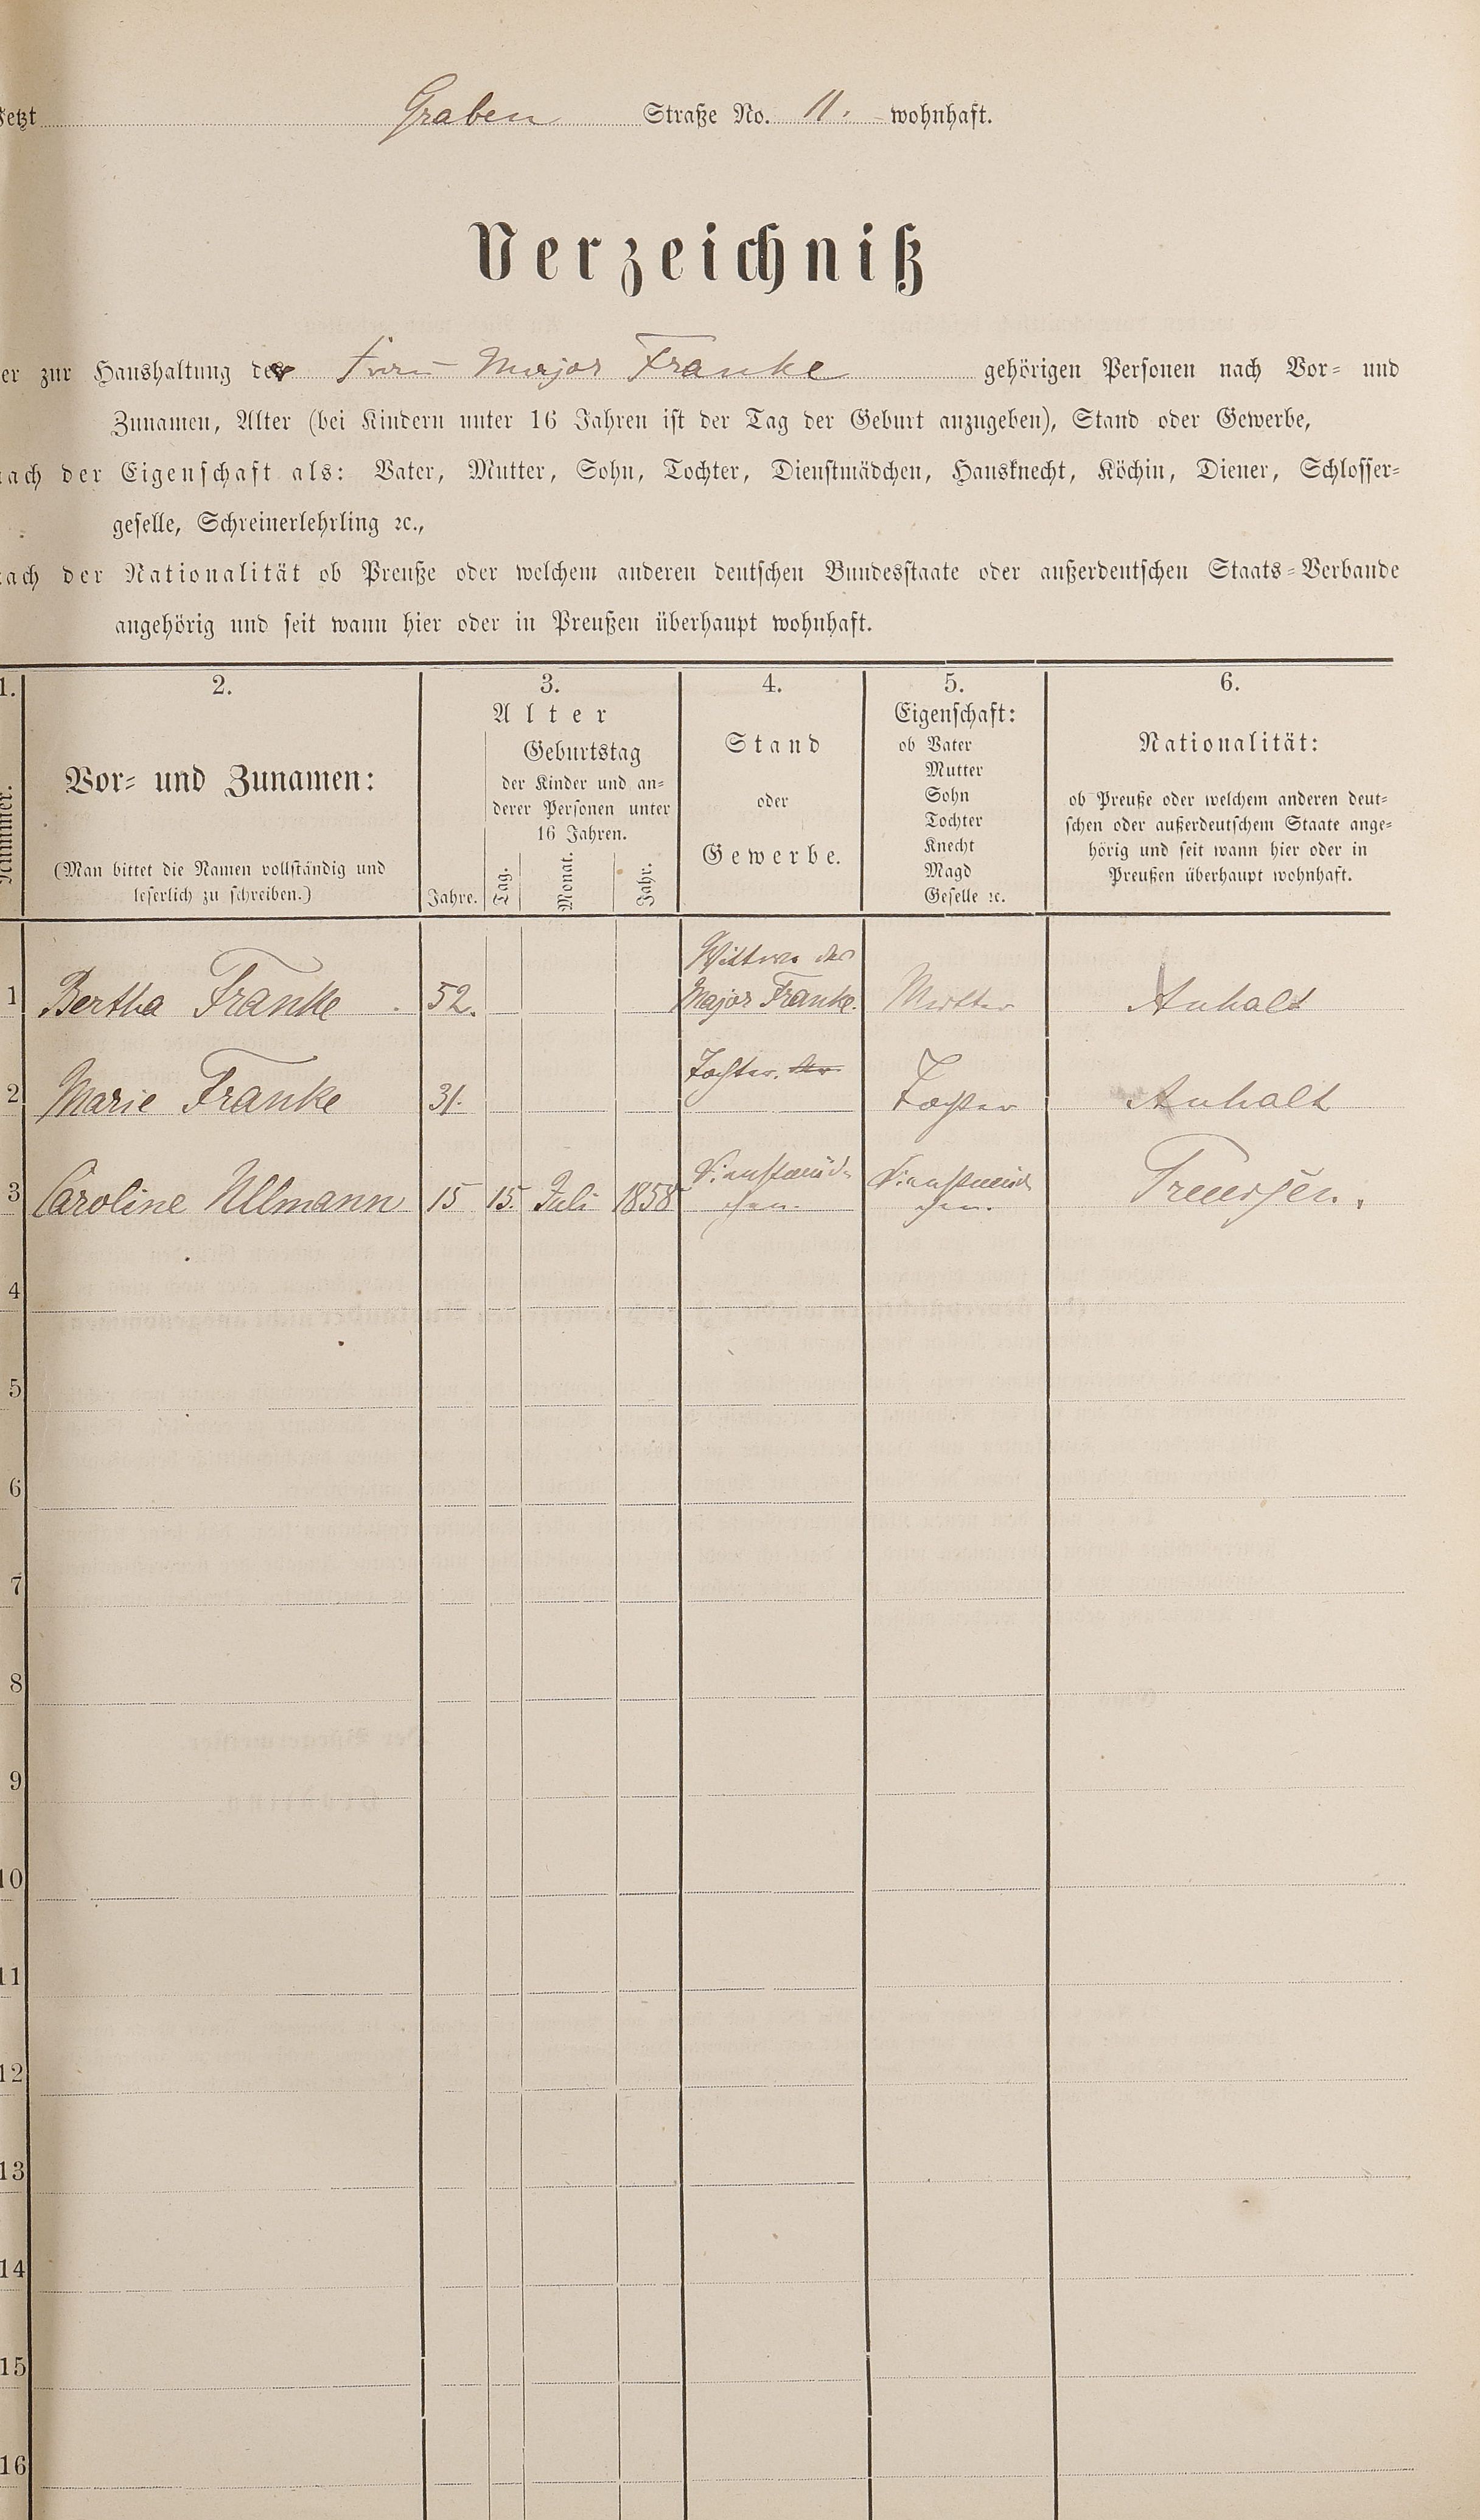 Jetzt Graben Straße No. 11. wohnhaft.
Verzeichniß
er zur Haushaltung der Frau Major Franke gehörigen Personen nach Vor- und
Zunamen, Alter (bei Kindern unter 16 Jahren ist der Tag der Geburt anzugeben), Stand oder Gewerbe,
nach der Eigenschaft als: Vater, Mutter, Sohn, Tochter, Dienstmädchen, Hausknecht, Köchin, Diener, Schlosser-
geselle, Schreinerlehrling ꝛc.,
nach der Nationalität ob Preuße oder welchem anderen deutschen Bundesstaate oder außerdeutschen Staats-Verbande
angehörig und seit wann hier oder in Preußen überhaupt wohnhaft.
1. 2. 3. 4. 5. 6.
Nummer.
Vor- und Zunamen:
(Man bittet die Namen vollständig und
leserlich zu schreiben.)
Alter
Jahre.
Geburtstag
der Kinder und an-
derer Personen unter
16 Jahren.
Tag. Monat. Jahr.
Stand
oder
Gewerbe.
Eigenschaft:
ob Vater
Mutter
Sohn
Tochter
Knecht
Magd
Geselle ꝛc.
Nationalität:
ob Preuße oder welchem anderen deut-
schen oder außerdeutschem Staate ange-
hörig und seit wann hier oder in
Preußen überhaupt wohnhaft.
Wittwe des
1 Bertha Franke. 52. Major Franke. Mutter Anhalt
Tochter. der
2 Marie Franke 31. Tochter Anhalt
3 Caroline Ullmann 15 15. Juli 1858 Dienstmäd- Dienstmäd Preußen.
chen. chen.
4
5
6
7
8
9
10
11
12
13
14
15
16